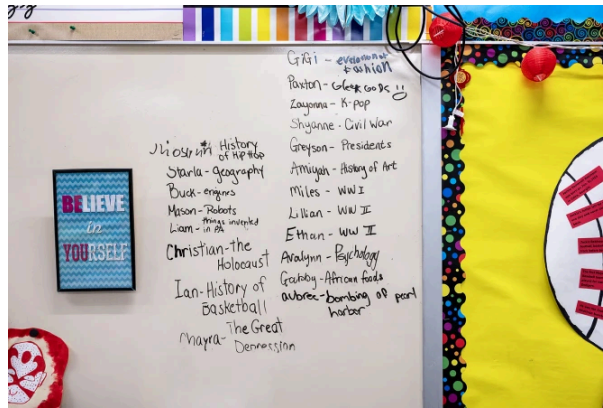 BELIEVE
in
YOURSELF
History
of Hip Hop
Starla - geography
Buck - engines
Mason - Robots
Liam - things invented
in PA
Christian - the
Holocaust
Ian - History of
Basketball
Mayra - The Great
Depression
GiGi - evolution of
fashion
Paxton - Greek GODS
Zayonna - K-pop
Shyanne - Civil War
Greyson - Presidents
Amiyah - History of Art
Miles - WW I
Lillian - WW II
Ethan - WW II
Avalynn - Psychology
Gatsby - African foods
aubree - bombing of pearl
harbor